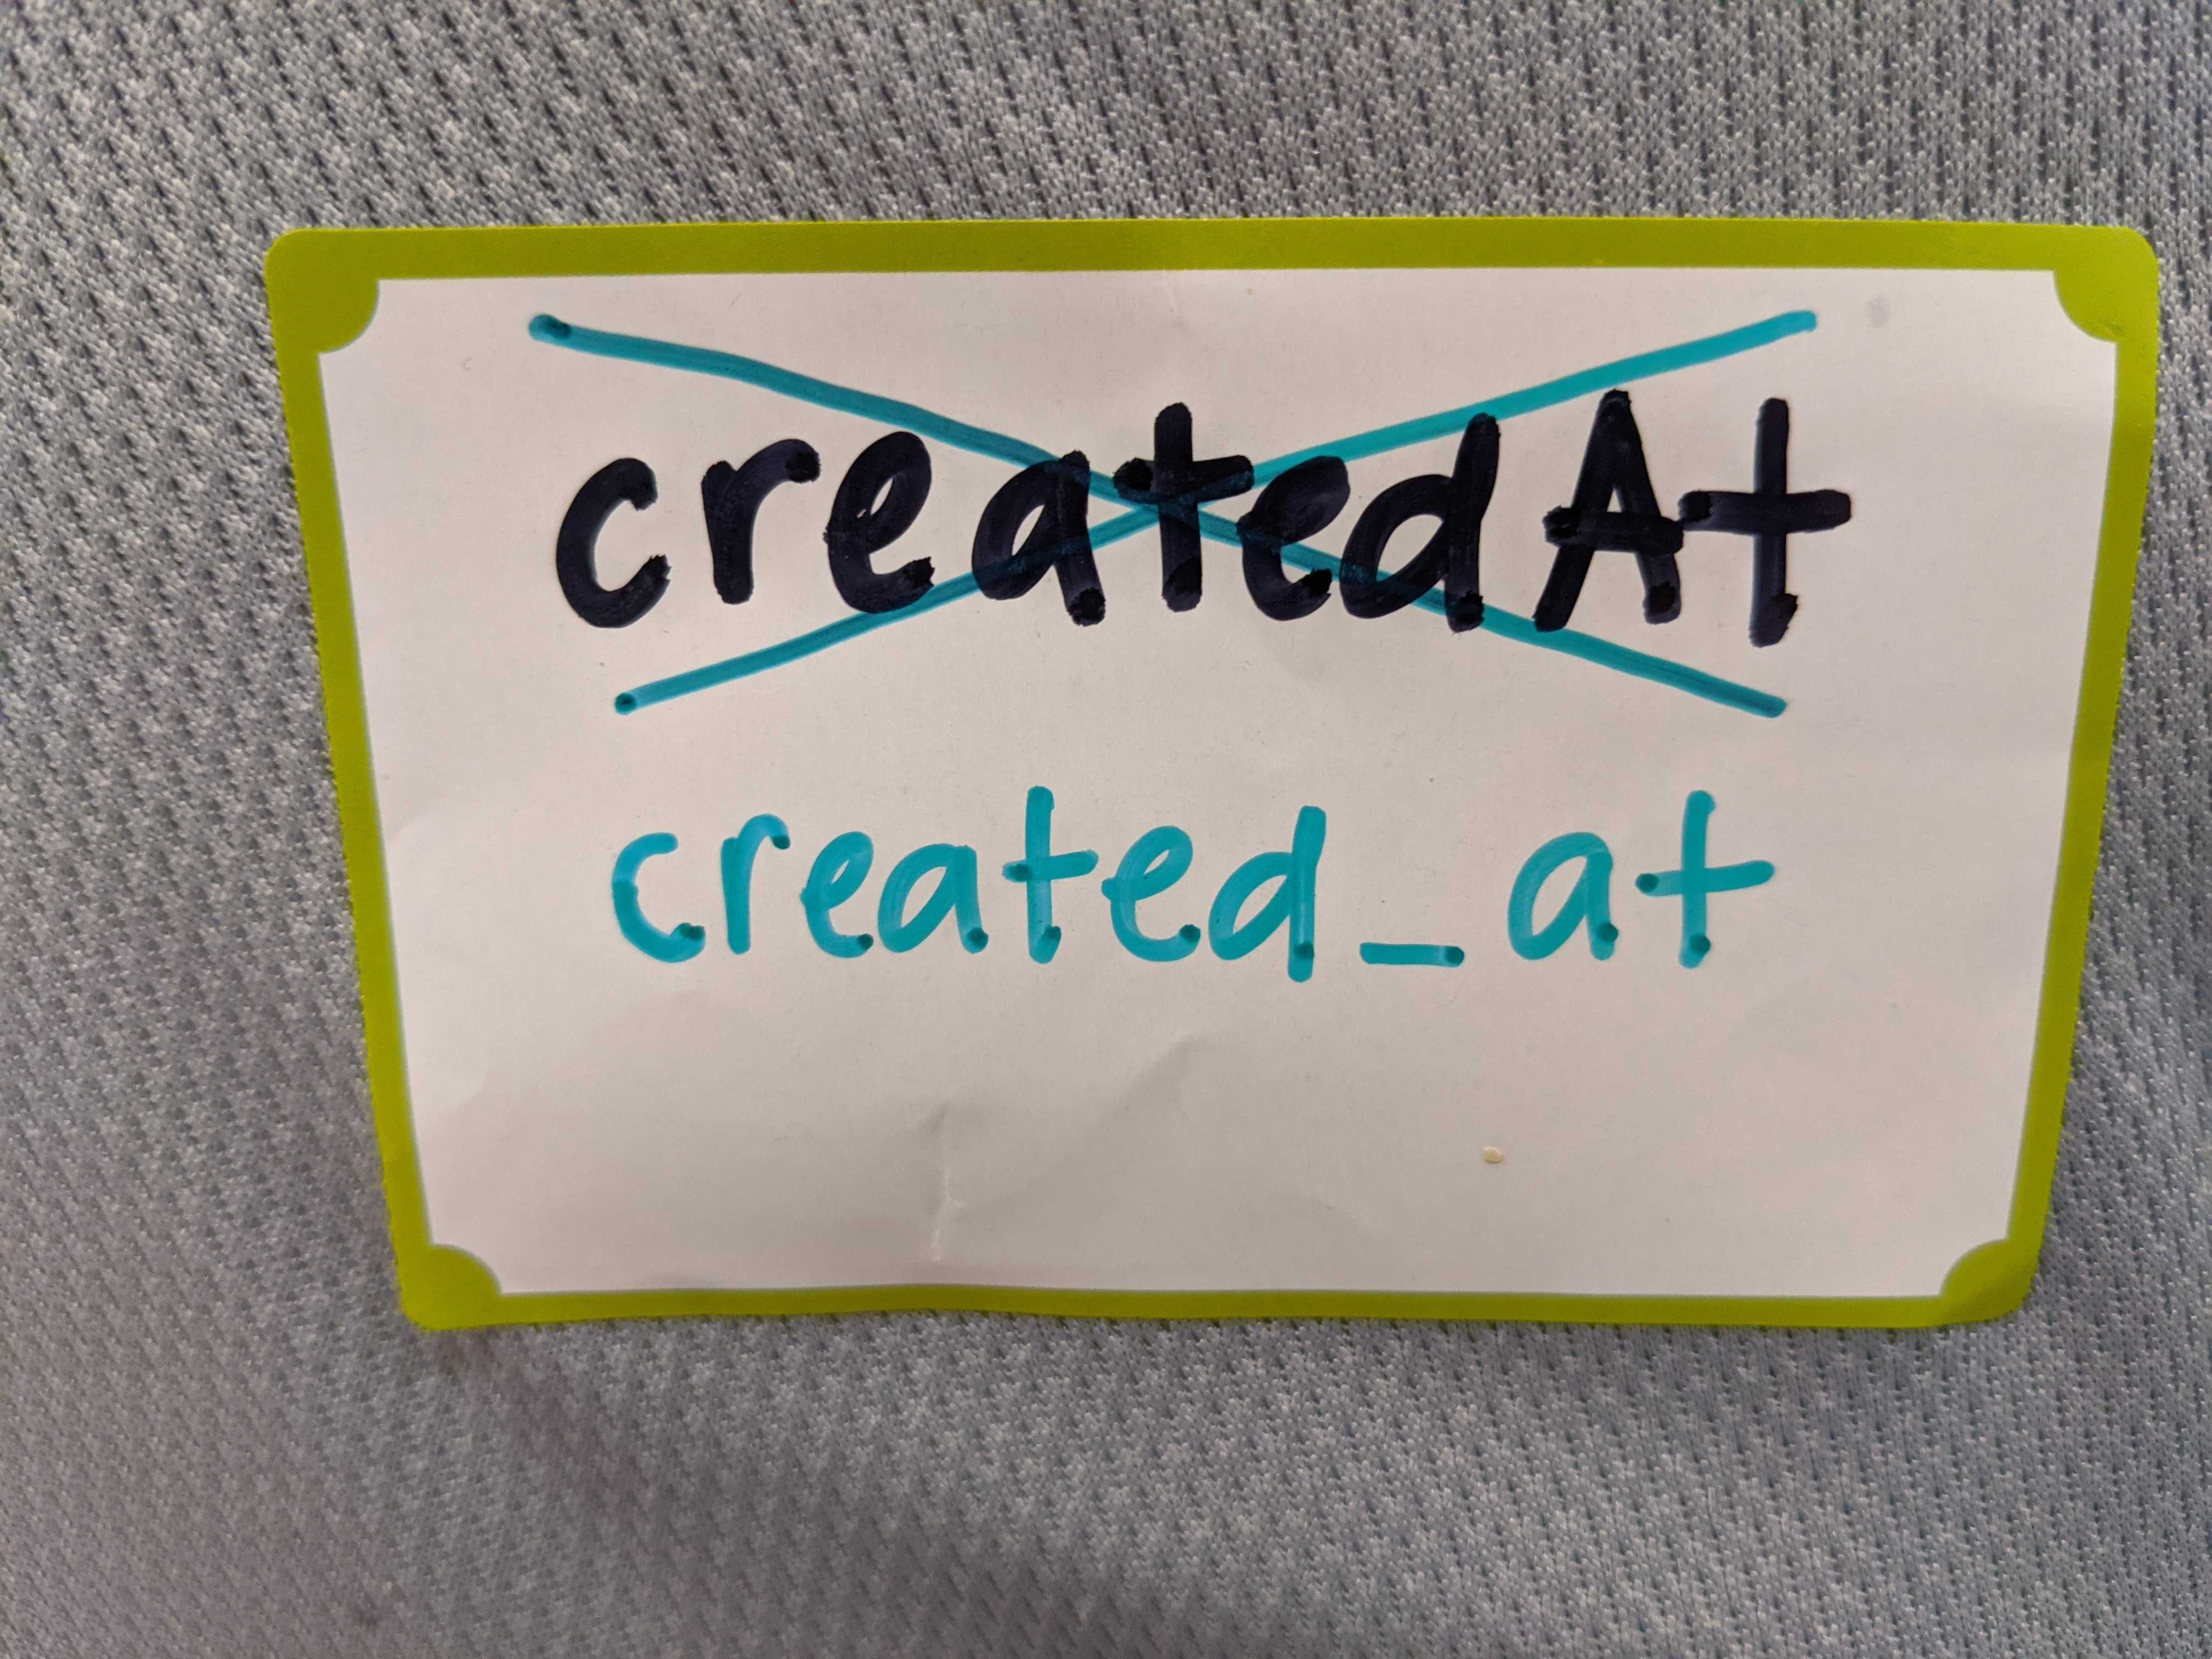 createdAt
created_at